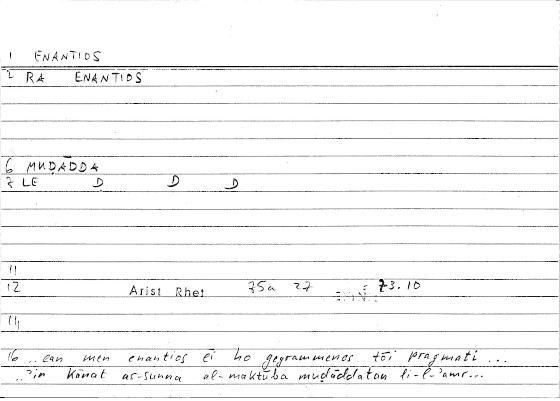 1 ENANTIOS
2 RA ENANTIOS
6 MUḌĀDDA
7 LE D D D
11
12 Arist Rhet 75a 27 73.10
14
16 ...ean men enantios ēi ho gegrammenos tōi pragmati ...
...'in kānat as-sunna al-maktūba muḍāddatan li-l-'amr...